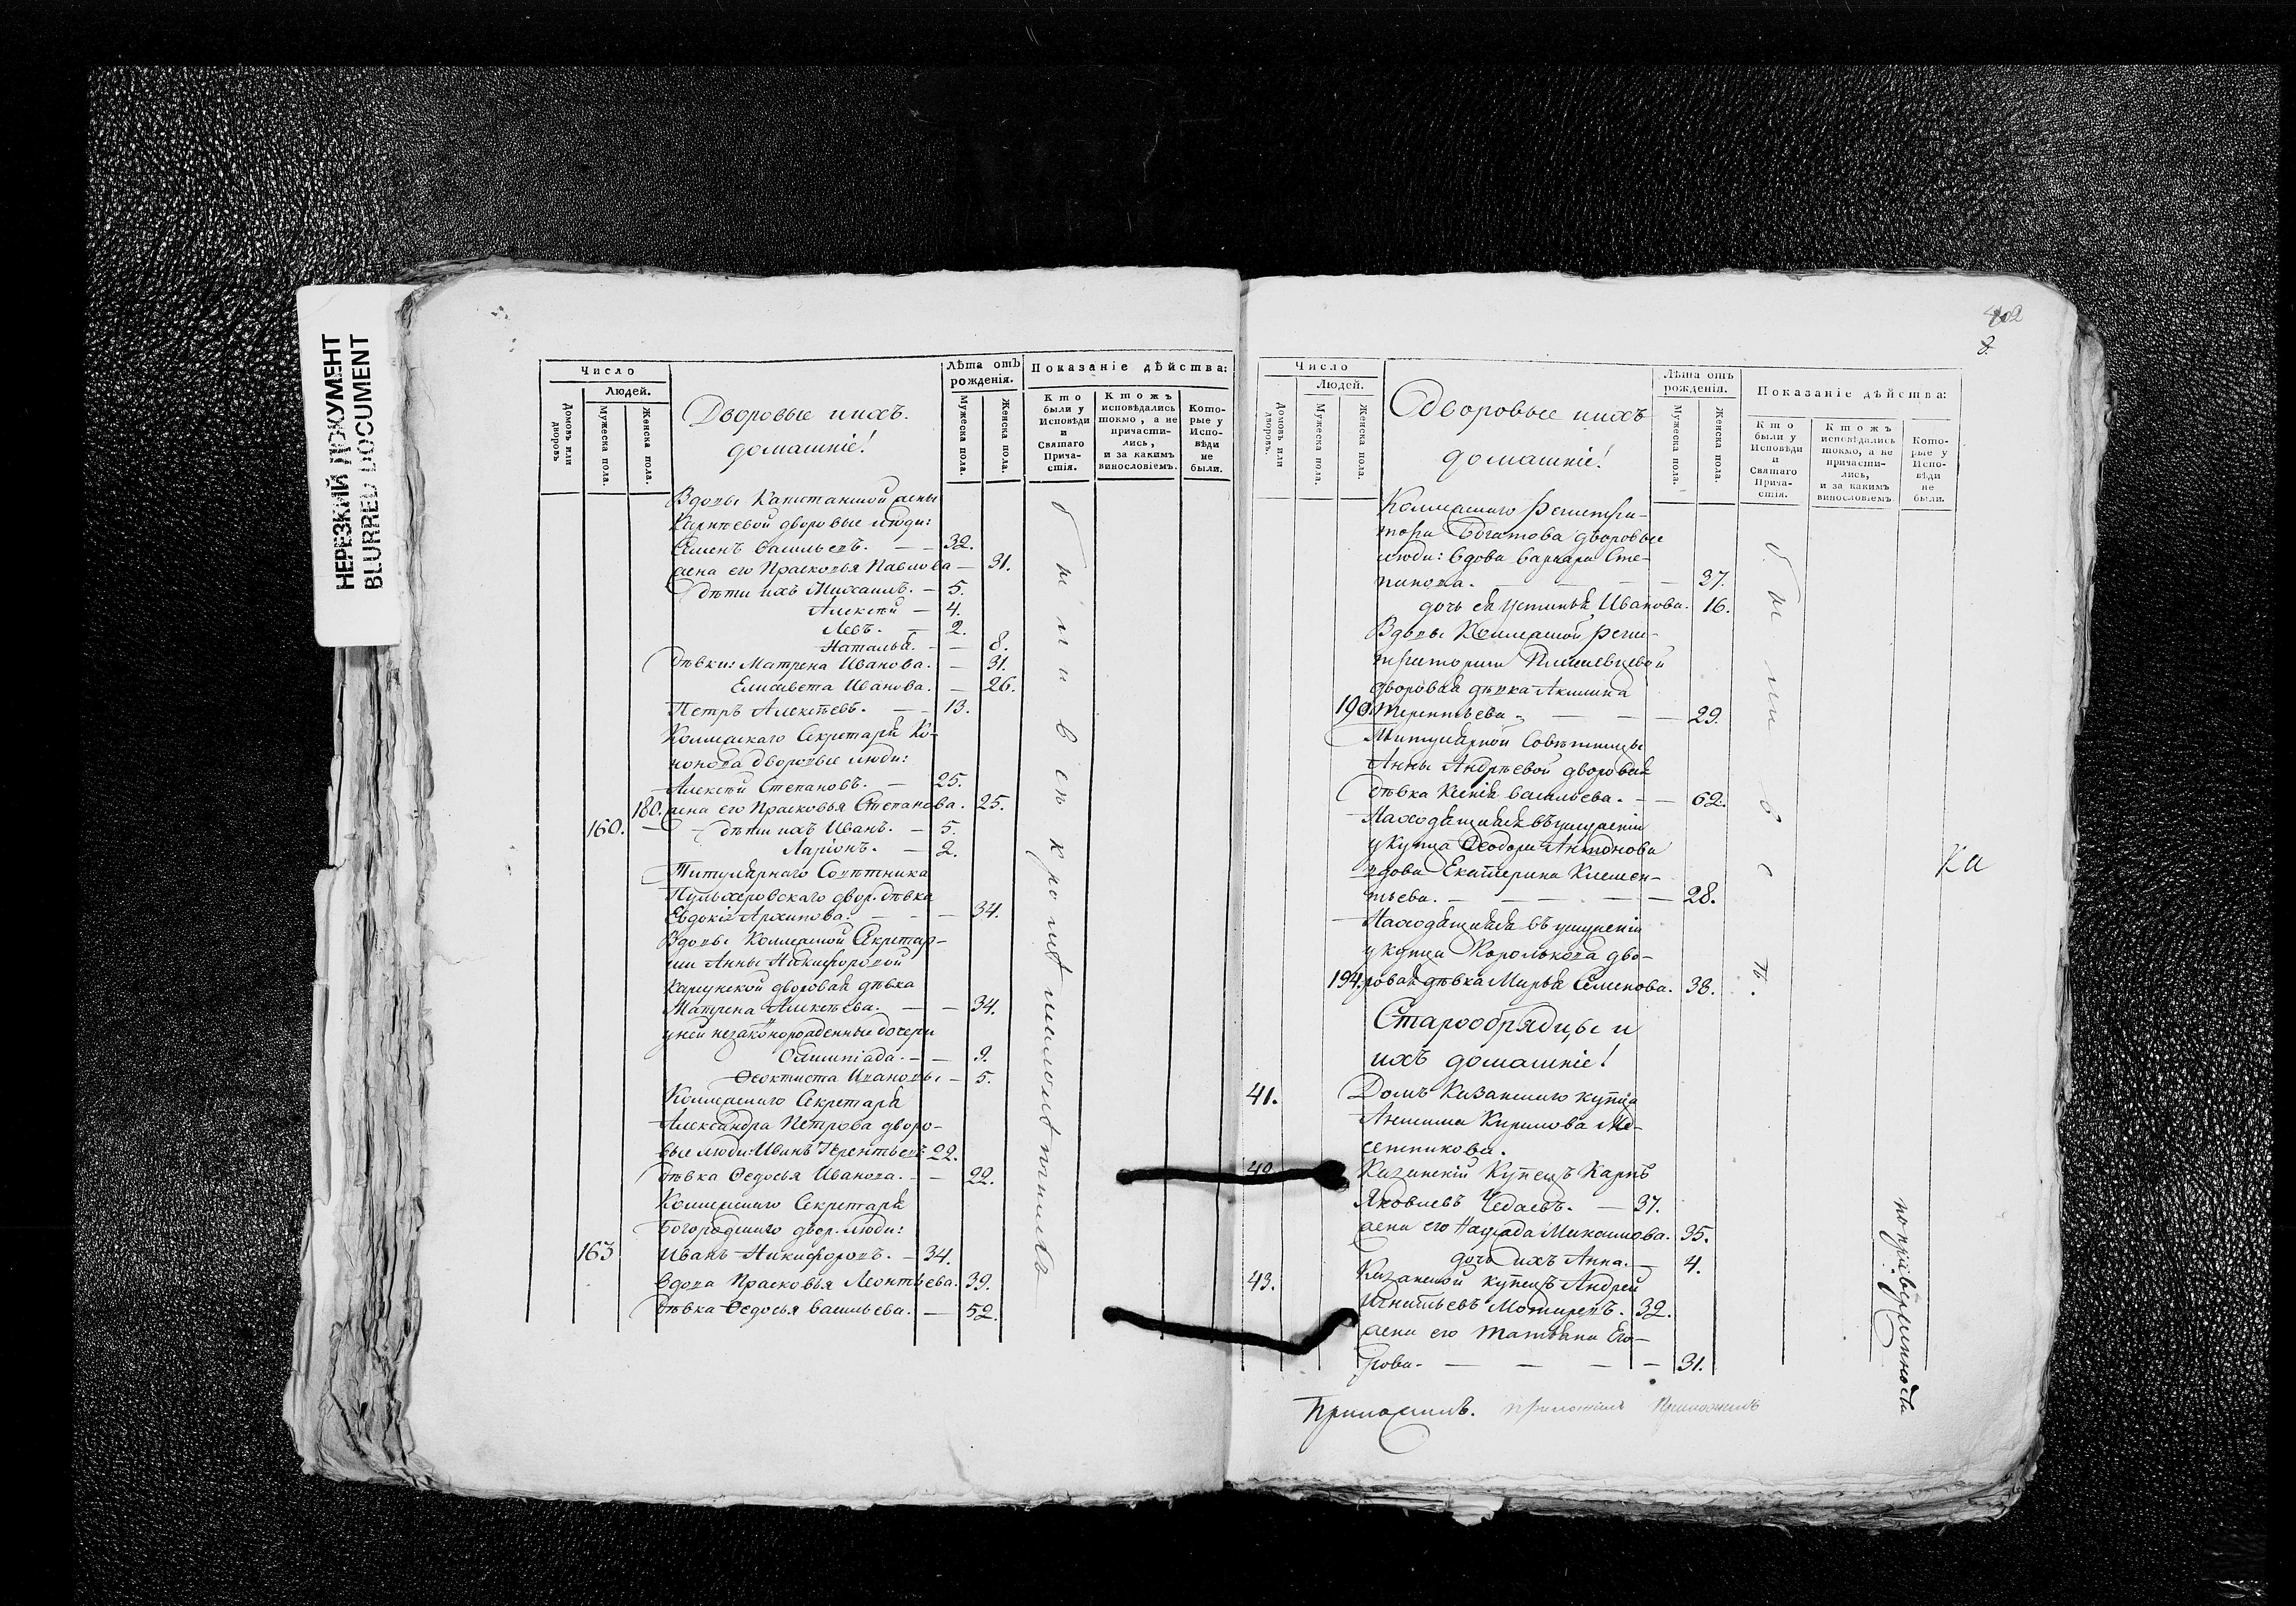 НЕРЕЗКИЙ ДОКУМЕНТ
BLURRED DOCUMENT
Число
Людей.
Домовъ или дворовъ
Мужеска пола.
Женска пола.
Дворовые и ихъ
домашніе!
Лѣта отъ рожденія.
Мужеска пола.
Женска пола.
Показаніе дѣйства:
Кто были у Исповѣди и Святаго Прича-стія.
Ктожъ исповѣдались токмо, а не причасти-лись, и за какимъ винословіемъ.
Кото-рые у Испо-вѣди не были.
Вдовы Капитанской жены
дворовые люди:
Семенъ Васильевъ. — — 32.
жена его Прасковья Павлова — 31.
дѣти ихъ Михаилъ. — 5.
Алексѣй — 4.
Левъ. — 2.
Наталья. — — 8.
дѣвки: Матрена Иванова. — 31.
Елисавета Иванова. — 26.
Петръ Алексѣевъ. — — 13.
Коллежскаго Секретаря Ко-
нонова дворовые люди:
Алексѣй Степановъ. — 25.
180. жена его Прасковья Степанова. 25.
160. — дѣти ихъ Иванъ. — 5.
Ларіонъ. — 2.
Титулярнаго Совѣтника
Пульхеровскаго двор. дѣвка
Евдокія Архипова. — — — 34.
Вдовы Коллежской Секретар-
ши Анны Никифоровой
дворовая дѣвка
Матрена Алексѣева. — — 34.
у ней незаконорожденные дочери
Олимпіада. — — 9.
Ѳеоктиста Ивановы — 5.
Коллежскаго Секретаря
Александра Петрова дворо-
вые люди: Иванъ Терентьевъ 22.
дѣвка Ѳедосья Иванова. — — 22.
Коллежскаго Секретаря
Богородскаго двор. люди:
163 Иванъ Никифоровъ. — 34.
вдова Прасковья Леонтьева. 39.
дѣвка Ѳедосья Васильева. — 52.
были и всѣ кромѣ
402
Число
Людей.
Домовъ или дворовъ.
Мужеска пола.
Женска пола.
Дворовые и ихъ
домашніе!
Лѣта отъ рожденія.
Мужеска пола.
Женска пола.
Показаніе дѣйства:
Кто были у Исповѣди и Святаго Прича-стія.
Ктожъ исповѣдались токмо, а не причасти-лись, и за какимъ винословіемъ.
Кото-рые у Испо-вѣди не были.
Коллежскаго Регистра-
тора Богатова дворовые
люди: вдова Варвара Сте-
панова. — — — 37.
дочь ея Устинья Иванова. 16.
Вдовы Коллежской Реги-
страторши
дворовая дѣвка Акилина
190. Терентьева. — — — 29.
Титулярной Совѣтницы
Анны Андреевой дворовая
дѣвка Ксенія Васильева. — — 62.
Находящаяся въ услуженіи
у купца Ѳеодора Антонова
вдова Екатерина Климен-
тьева. — — — — — 28.
Находящаяся въ услуженіи
у купца Королькова дво-
194. ровая дѣвка Марья Семенова. 38.
Старообрядцы и
ихъ домашніе!
41. Домъ Казанскаго купца
Анисима Кирилова Мѣ-
сетникова.
42. Казанскій Купецъ Карпъ
Яковлевъ Чедаевъ. — 37.
жена его Максимова. 35.
дочь ихъ Анна. — 4.
43. Казанской купецъ Андрей
Игнатьевъ 32.
жена его Татьяна Его-
рова. — — — — 31.
были всѣ.
по приверженности
ка
Приложилъ. приложилъ Приложилъ